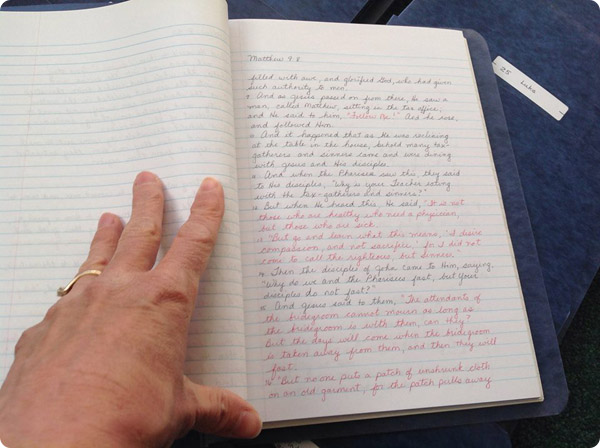 Matthew 9:8
filled with awe, and glorified God, who had given
such authority to men.
9 And as Jesus passed on from there, He saw a
man, called Matthew, sitting in the tax office;
and He said to him, "Follow Me!" And he rose,
and followed Him.
10 And it happened that as He was reclining
at the table in the house, behold many tax-
gatherers and sinners came and were dining
with Jesus and His disciples.
11 And when the Pharisees saw this, they said
to His disciples, "Why is your Teacher eating
with the tax-gatherers and sinners?"
12 But when He heard this, He said, "It is not
those who are healthy who need a physician,
but those who are sick.
13 "But go and learn what this means, 'I desire
compassion, and not sacrifice,' for I did not
come to call the righteous, but sinners."
14 Then the disciples of John came to Him, saying,
"Why do we and the Pharisees fast, but Your
disciples do not fast?"
15 And Jesus said to them, "The attendants of
the bridegroom cannot mourn as long as
the bridegroom is with them, can they?
But the days will come when the bridegroom
is taken away from them, and then they will
fast.
16 "But no one puts a patch of unshrunk cloth
on an old garment, for the patch pulls away
25 Luke